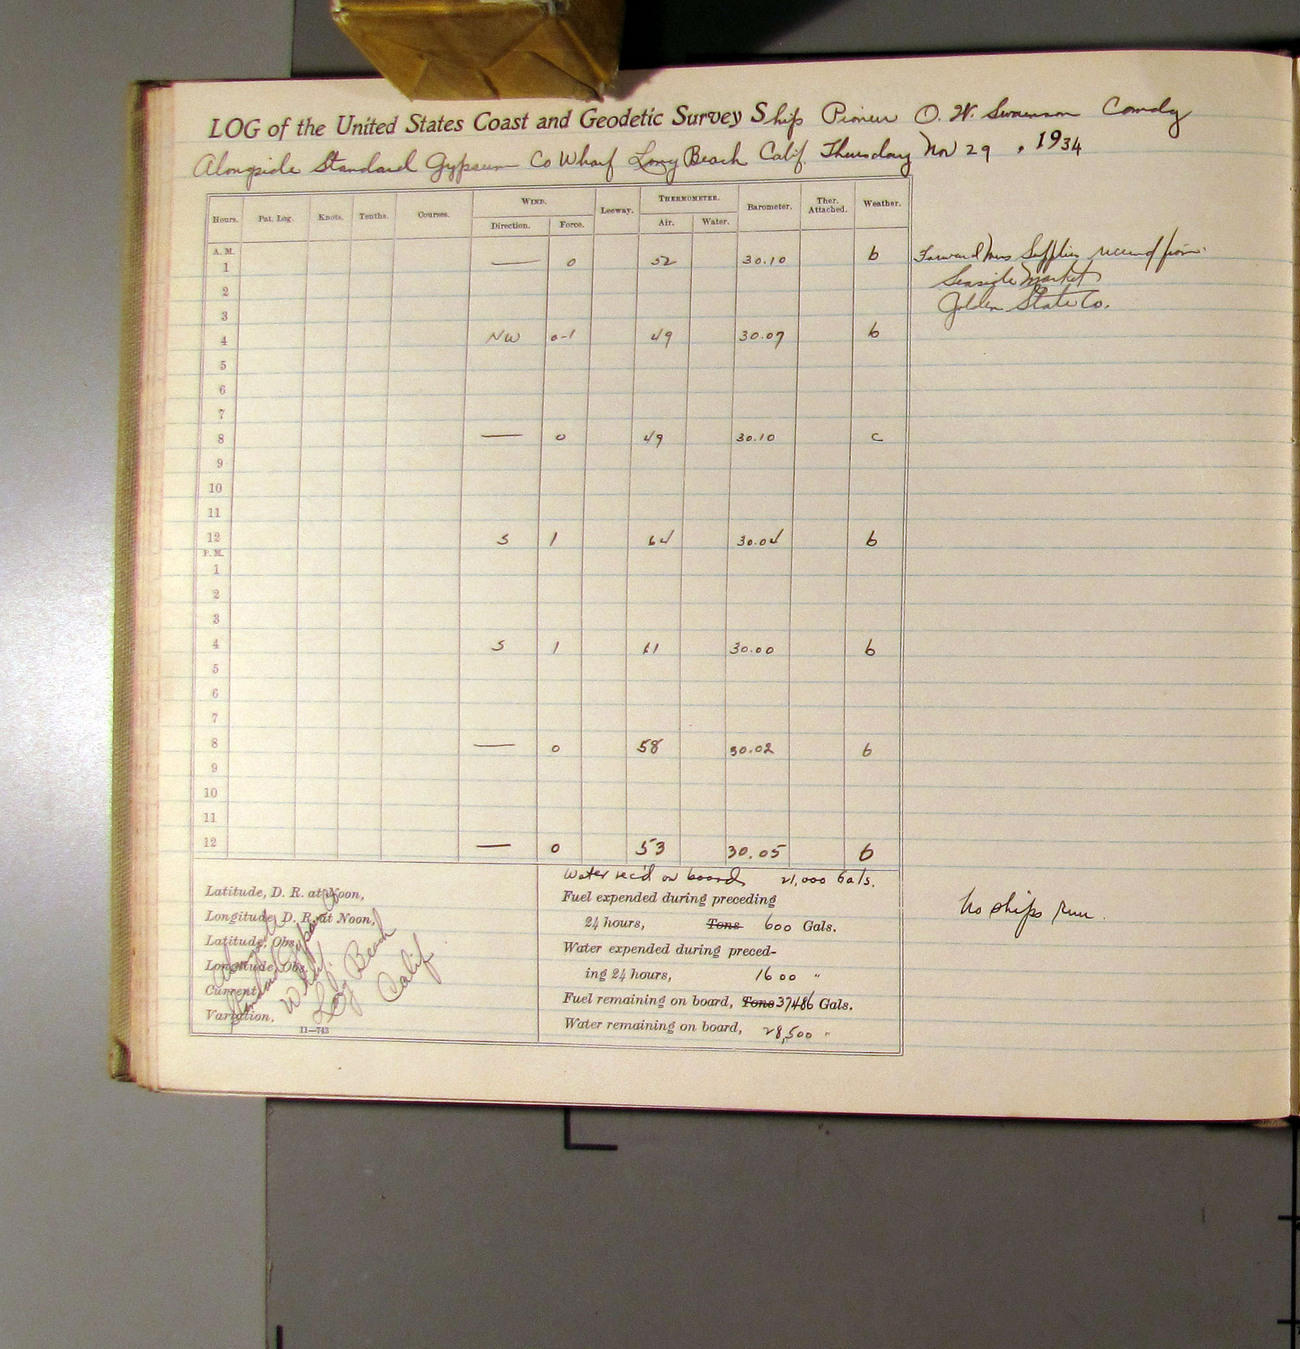 LOG of the United States Coast and Geodetic Survey Ship Pioneer O. W. Swainson Comdg
Alongside Standard Gypsum Co Wharf Long Beach Calif. Thursday Nov 29, 1934
Hours. Pat. Log. Knots. Tenths. Courses. WIND. Leeway. THERMOMETER. Barometer. Ther. Attached. Weather.
Direction. Force. Air. Water.
A. M.
1 — 0 52 30.10 b
2
3
4 NW 0-1 49 30.07 b
5
6
7
8 — 0 49 30.10 c
9
10
11
12 S 1 64 30.04 b
P. M.
1
2
3
4 S 1 61 30.00 b
5
6
7
8 — 0 58 30.02 b
9
10
11
12 — 0 53 30.05 b
Forward Mess Supplies received from
Seaside Market
Golden State Co.
Latitude, D. R. at Noon,
Longitude, D. R. at Noon,
Latitude, Obs.
Longitude, Obs.
Current,
Variation,
11—743
Alongside
Standard Gypsum Co
Wharf
Long Beach
Calif
Water rec'd on board 21,000 Gals.
Fuel expended during preceding
24 hours, Tons 600 Gals.
Water expended during preced-
ing 24 hours, 1600 "
Fuel remaining on board, Tons 37486 Gals.
Water remaining on board, 28,500 "
No ships run.